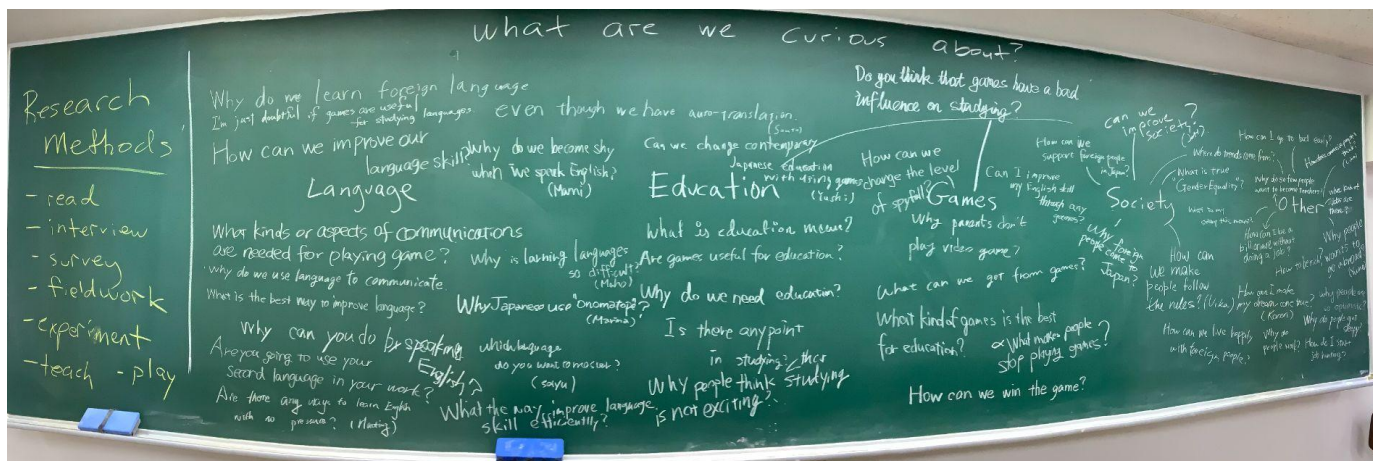 what are we curious about?
Research
Methods
- read
- interview
- survey
- fieldwork
- experiment
- teach - play
Why do we learn foreign language
even though we have auto-translation.
I'm just doubtful if games are useful
for studying languages
How can we improve our
language skill?
Why do we become shy
when we speak English?
(Mami)
Language
What kinds or aspects of communications
are needed for playing game?
Why do we use language to communicate
What is the best way to improve language?
Why is larning languages
so difficult?
(Maho)
Why Japanese use "Onomatope"?
(Marina)
Why can you do by speaking
English?
Are you going to use your
second language in your work?
Are there any ways to learn English
with no pressure?
which language
do you want to master?
(sayu)
What the way improve language
skill efficiently?
Can we change contemporary
Japanese education
with using games
(Yushi)
Education
What is education mean?
Are games useful for education?
Why do we need education?
Is there any point
in studying
Why people think studying
is not exciting?
Do you think that games have a bad
influence on studying?
How can we
change the level
of spyfall?
Can I improve
my English skill
through any
games?
Games
Why parents don't
play video game?
What can we got from games?
What kind of games is the best
for education?
What makes people
stop playing games?
How can we win the game?
Can we
improve
society?
How can we
support foreign people
in Japan?
Where do trends come from?
What is true
"Gender Equality"?
Society
Why foreign
people come to
Japan?
How can
we make
people follow
the rules?
How can we live happily
with foreign people?
How can I go to bed early?
Why do so few people
want to become teachers?
Other
How can I be a
billionaire without
doing a job?
Why people
want to
go abroad?
How can I make
my dream come true?
(Karen)
Why do
people
How do I start
job hunting?